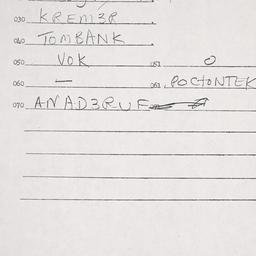 030 KREM3R
040 TOMBANK
050 VOK 051 O
060 — 061 POCTONTEK
070 ANAD3RUF